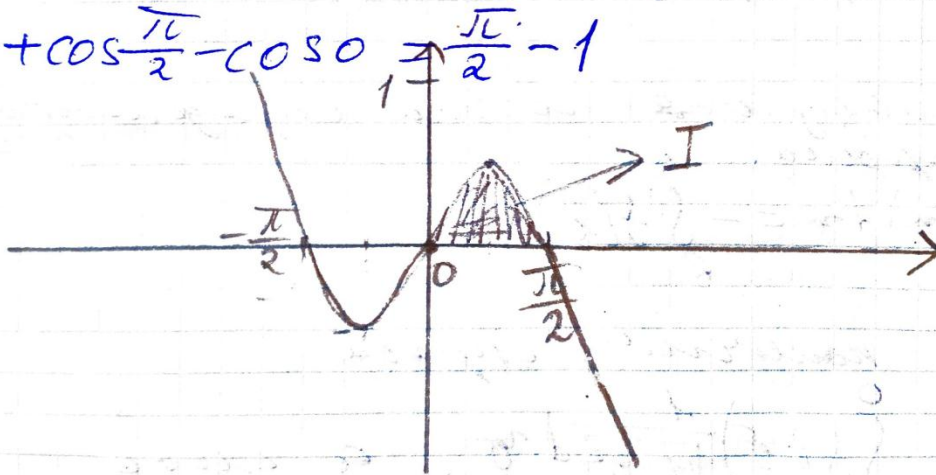 +cos π/2 - cos 0 = π/2 - 1
1
I
-π/2
0
π/2